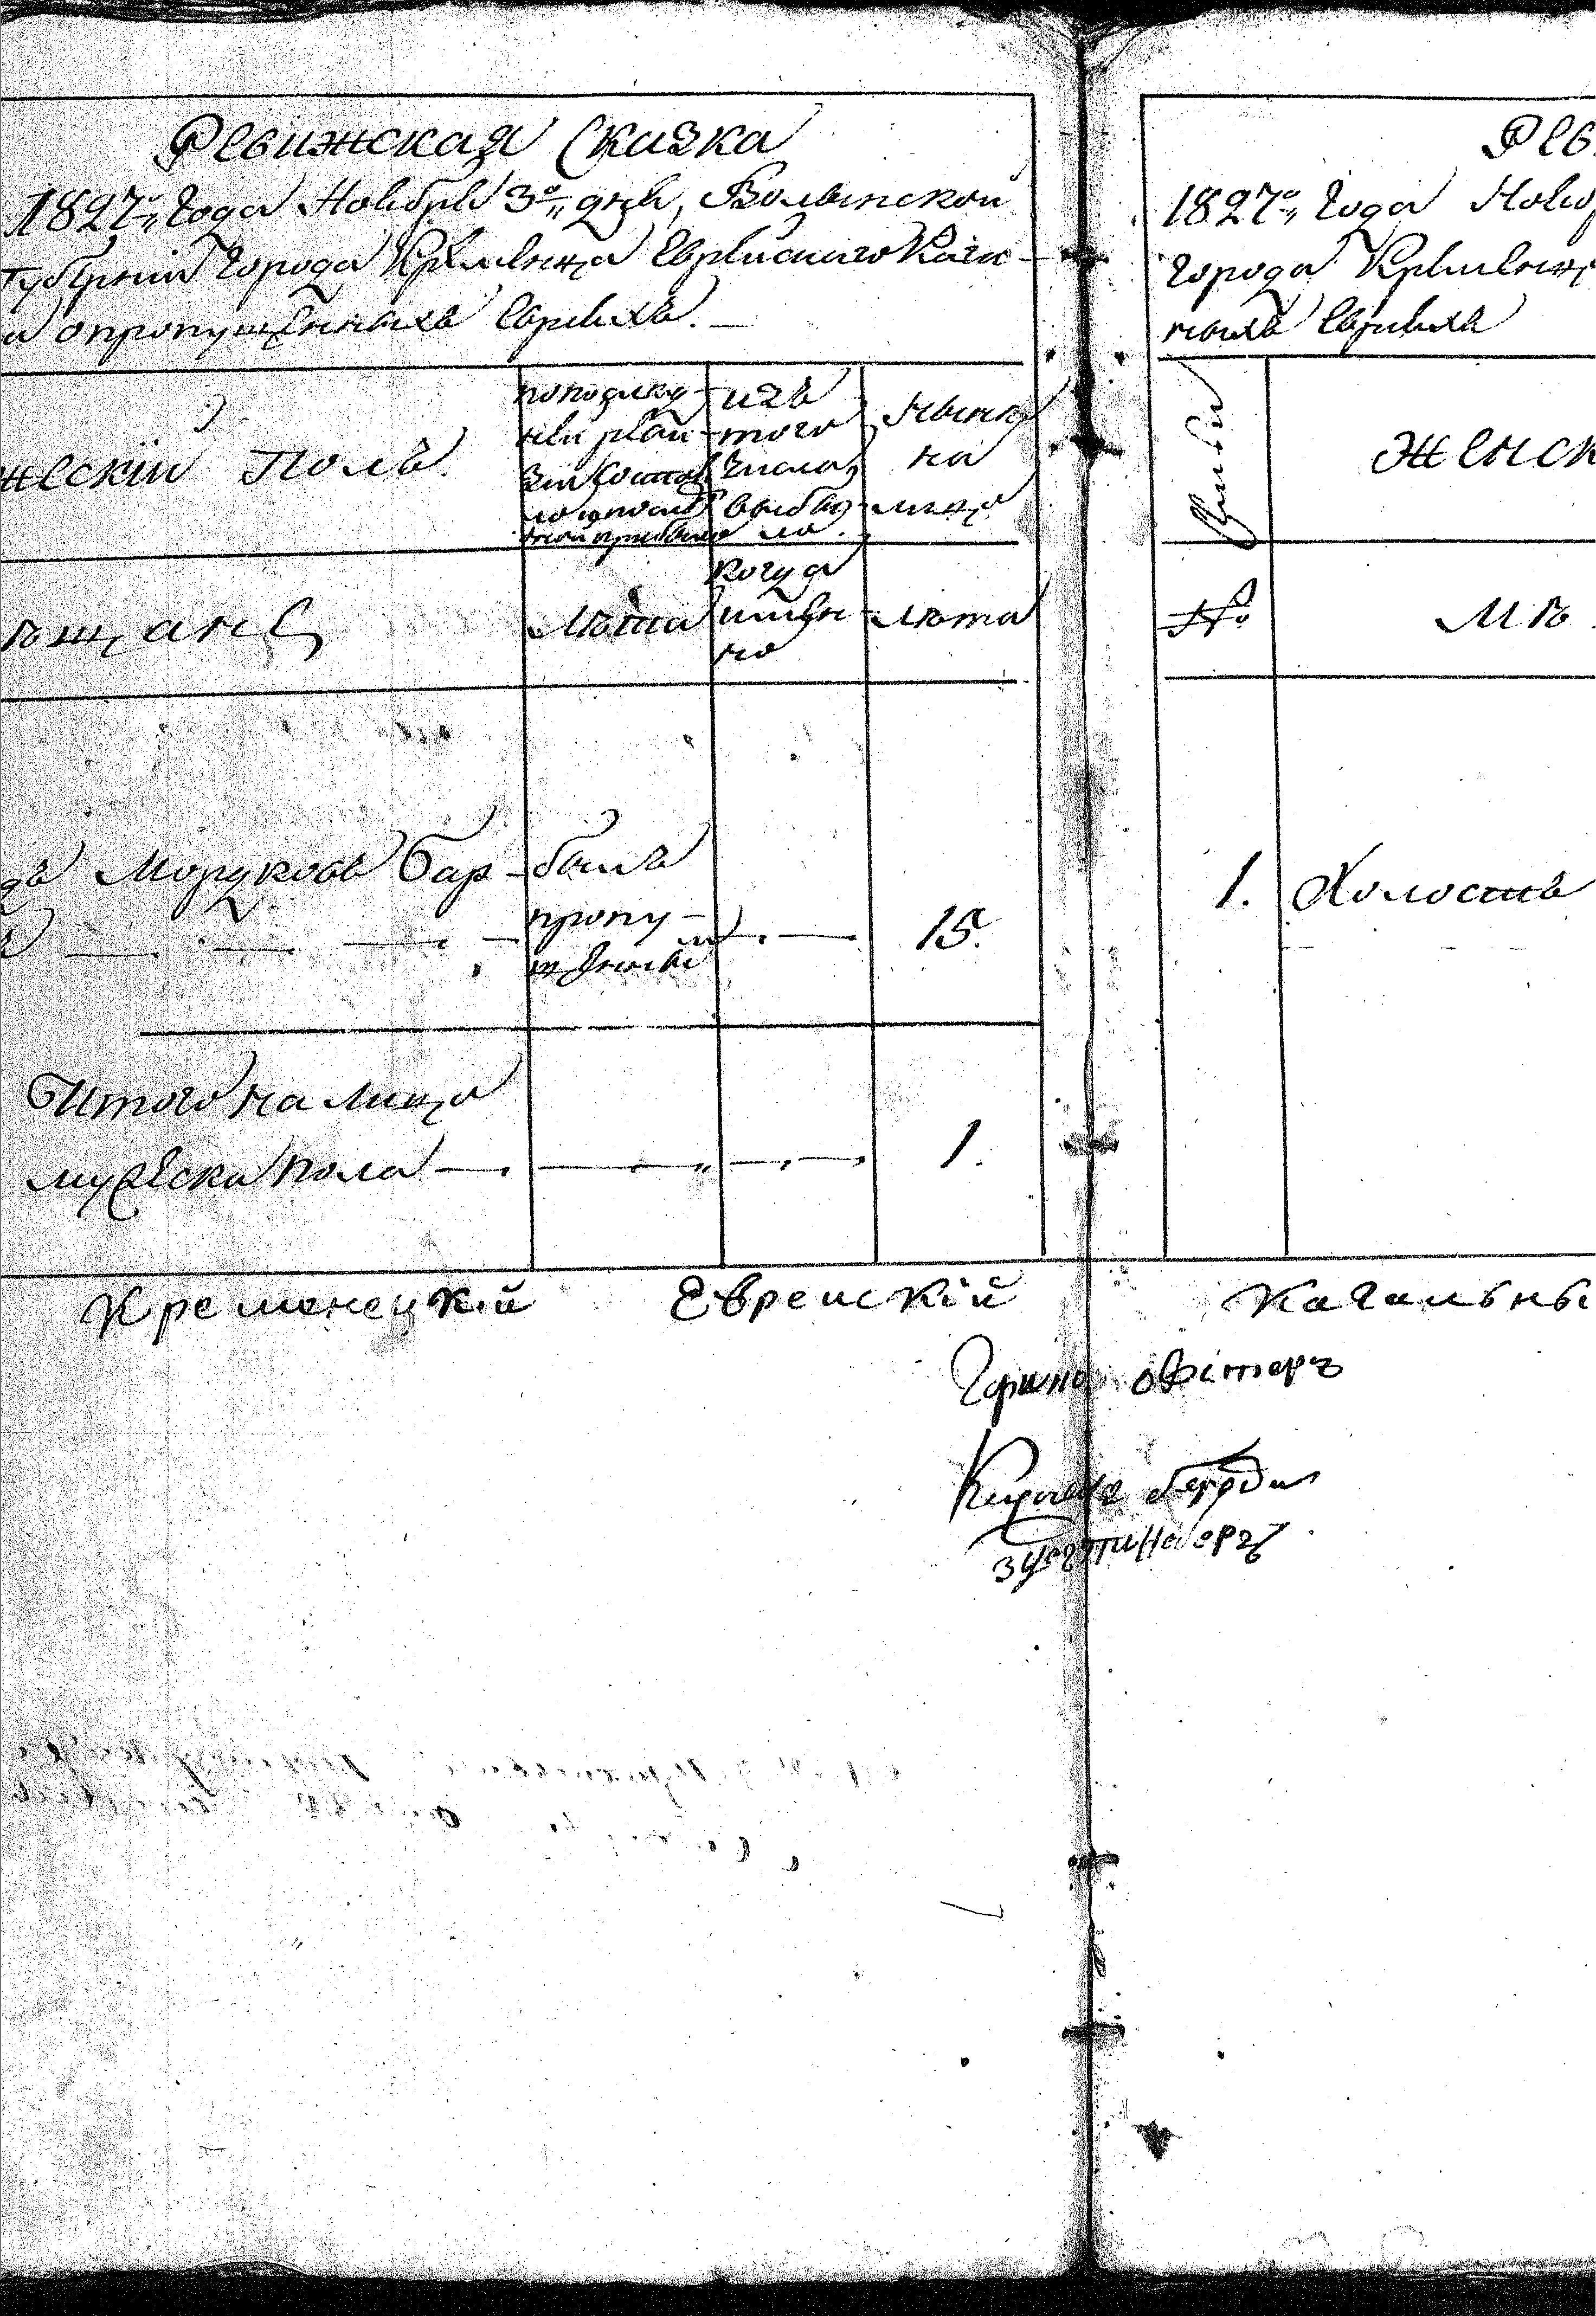 Ревижская Сказка
1827го Года Ноября 3го дня, Волынской
Губернiи Города Кременца Еврейскаго Кага-
а о пропущенныхъ Евреяхъ.
жескiй Полъ.
по послед-
ней реви-
зiи состоя
ло и после
оной прибыло
изъ
того
числа
выбы
ло.
ныне
на
лицо
ѣщане
Лѣта
когда
имян
но
лѣта
дъ Мордковъ Бар-
былъ
пропу-
щенный
15.
Итого на лицо
мужеска пола
1.
Кременецкiй Евреискiй
Рев
1827го Года Нояб
Города Кременц
ныхъ Евреяхъ
Семьи
женск
№
мѣ
1.
Холостъ
Кагальны